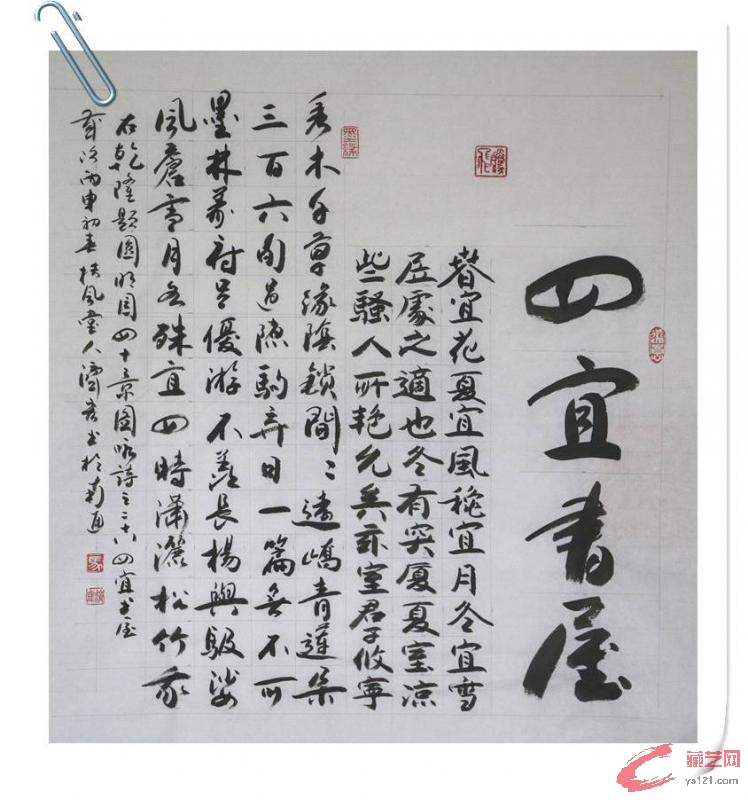 四宜書屋
春宜花夏宜風穐宜月冬宜雪
居處之適也冬有突厦夏室凉
些騷人所艳允矣兹室君子攸寧
秀木千章緑陰鎖間〻遠嶠青蓮朵
三百六旬過隙駒弃日一篇無不可
墨林義府足優游不羡長楊與馺娑
風花雪月各殊宜四時瀟灑松竹我
右乾隆題圓明園四十景圖咏詩之二十八四宜書屋
歲次丙申初春扶風堂人書於南通
藏艺网
ys121.com